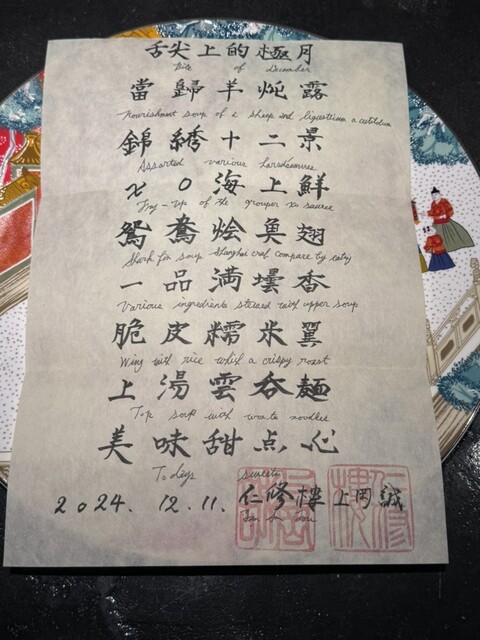 舌尖上的極月
Bite of December
當歸羊炖露
nourishment soup of a sheep and ligusticum acutilobum
錦綉十二景
Assorted various
X O 海上鮮
Fry-up of the grouper xo sauce
鴛鴦烩魚翅
Shark fin soup Shanghai crab compare by eating
一品満壜香
Various ingredients stewed with upper soup
脆皮糯米翼
Wing with rice whish a crispy roast
上湯雲吞麺
Top soup with wonta noodles
美味甜点心
Todays sweets
2024. 12. 11. 仁修樓 上岡誠
Jin Shu Lou